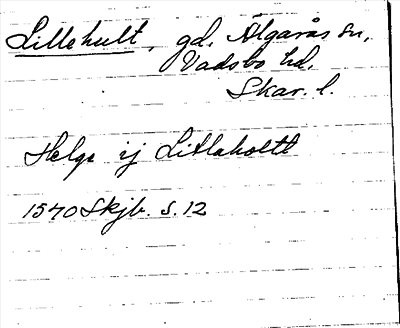 Lillehult, gd. Älgarås sn,
Vadsbo hd.
Skar. l.
Helge ij Litlaholtt
1570 Skjb. s. 12